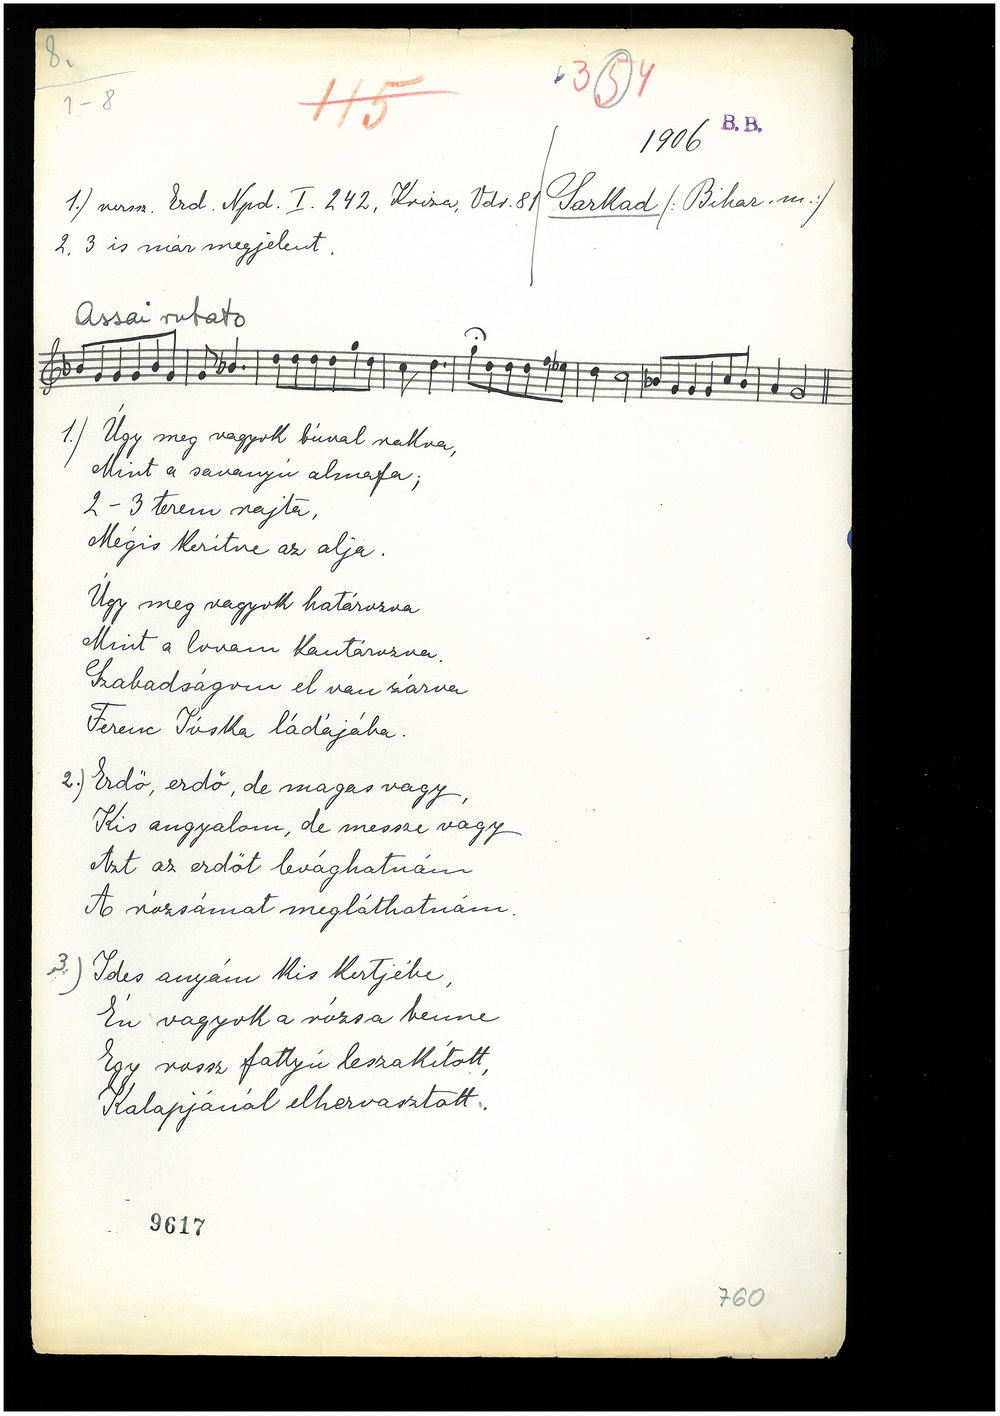 8.
1-8
115
354
1906 B. B.
1.) versz. Erd. Npd. I. 242, Kriza, Vdr. 81 Sarkad (: Bihar. m. :)
2, 3 is már megjelent.
Assai rubato
1.) Úgy meg vagyok búval rakva,
Mint a savanyú almafa;
2-3 terem rajta,
Mégis kerítve az alja.
Úgy meg vagyok határozva
Mint a lovam kantározva.
Szabadságom el van zárva
Ferenc Jóska ládájába.
2.) Erdő, erdő, de magas vagy,
Kis angyalom, de messze vagy
Azt az erdőt levághatnám
A rózsámat megláthatnám.
3.) Ides anyám kis kertjébe,
Én vagyok a rózsa benne
Egy rossz fattyú leszakított,
Kalapjánál elhervasztott.
9617
760